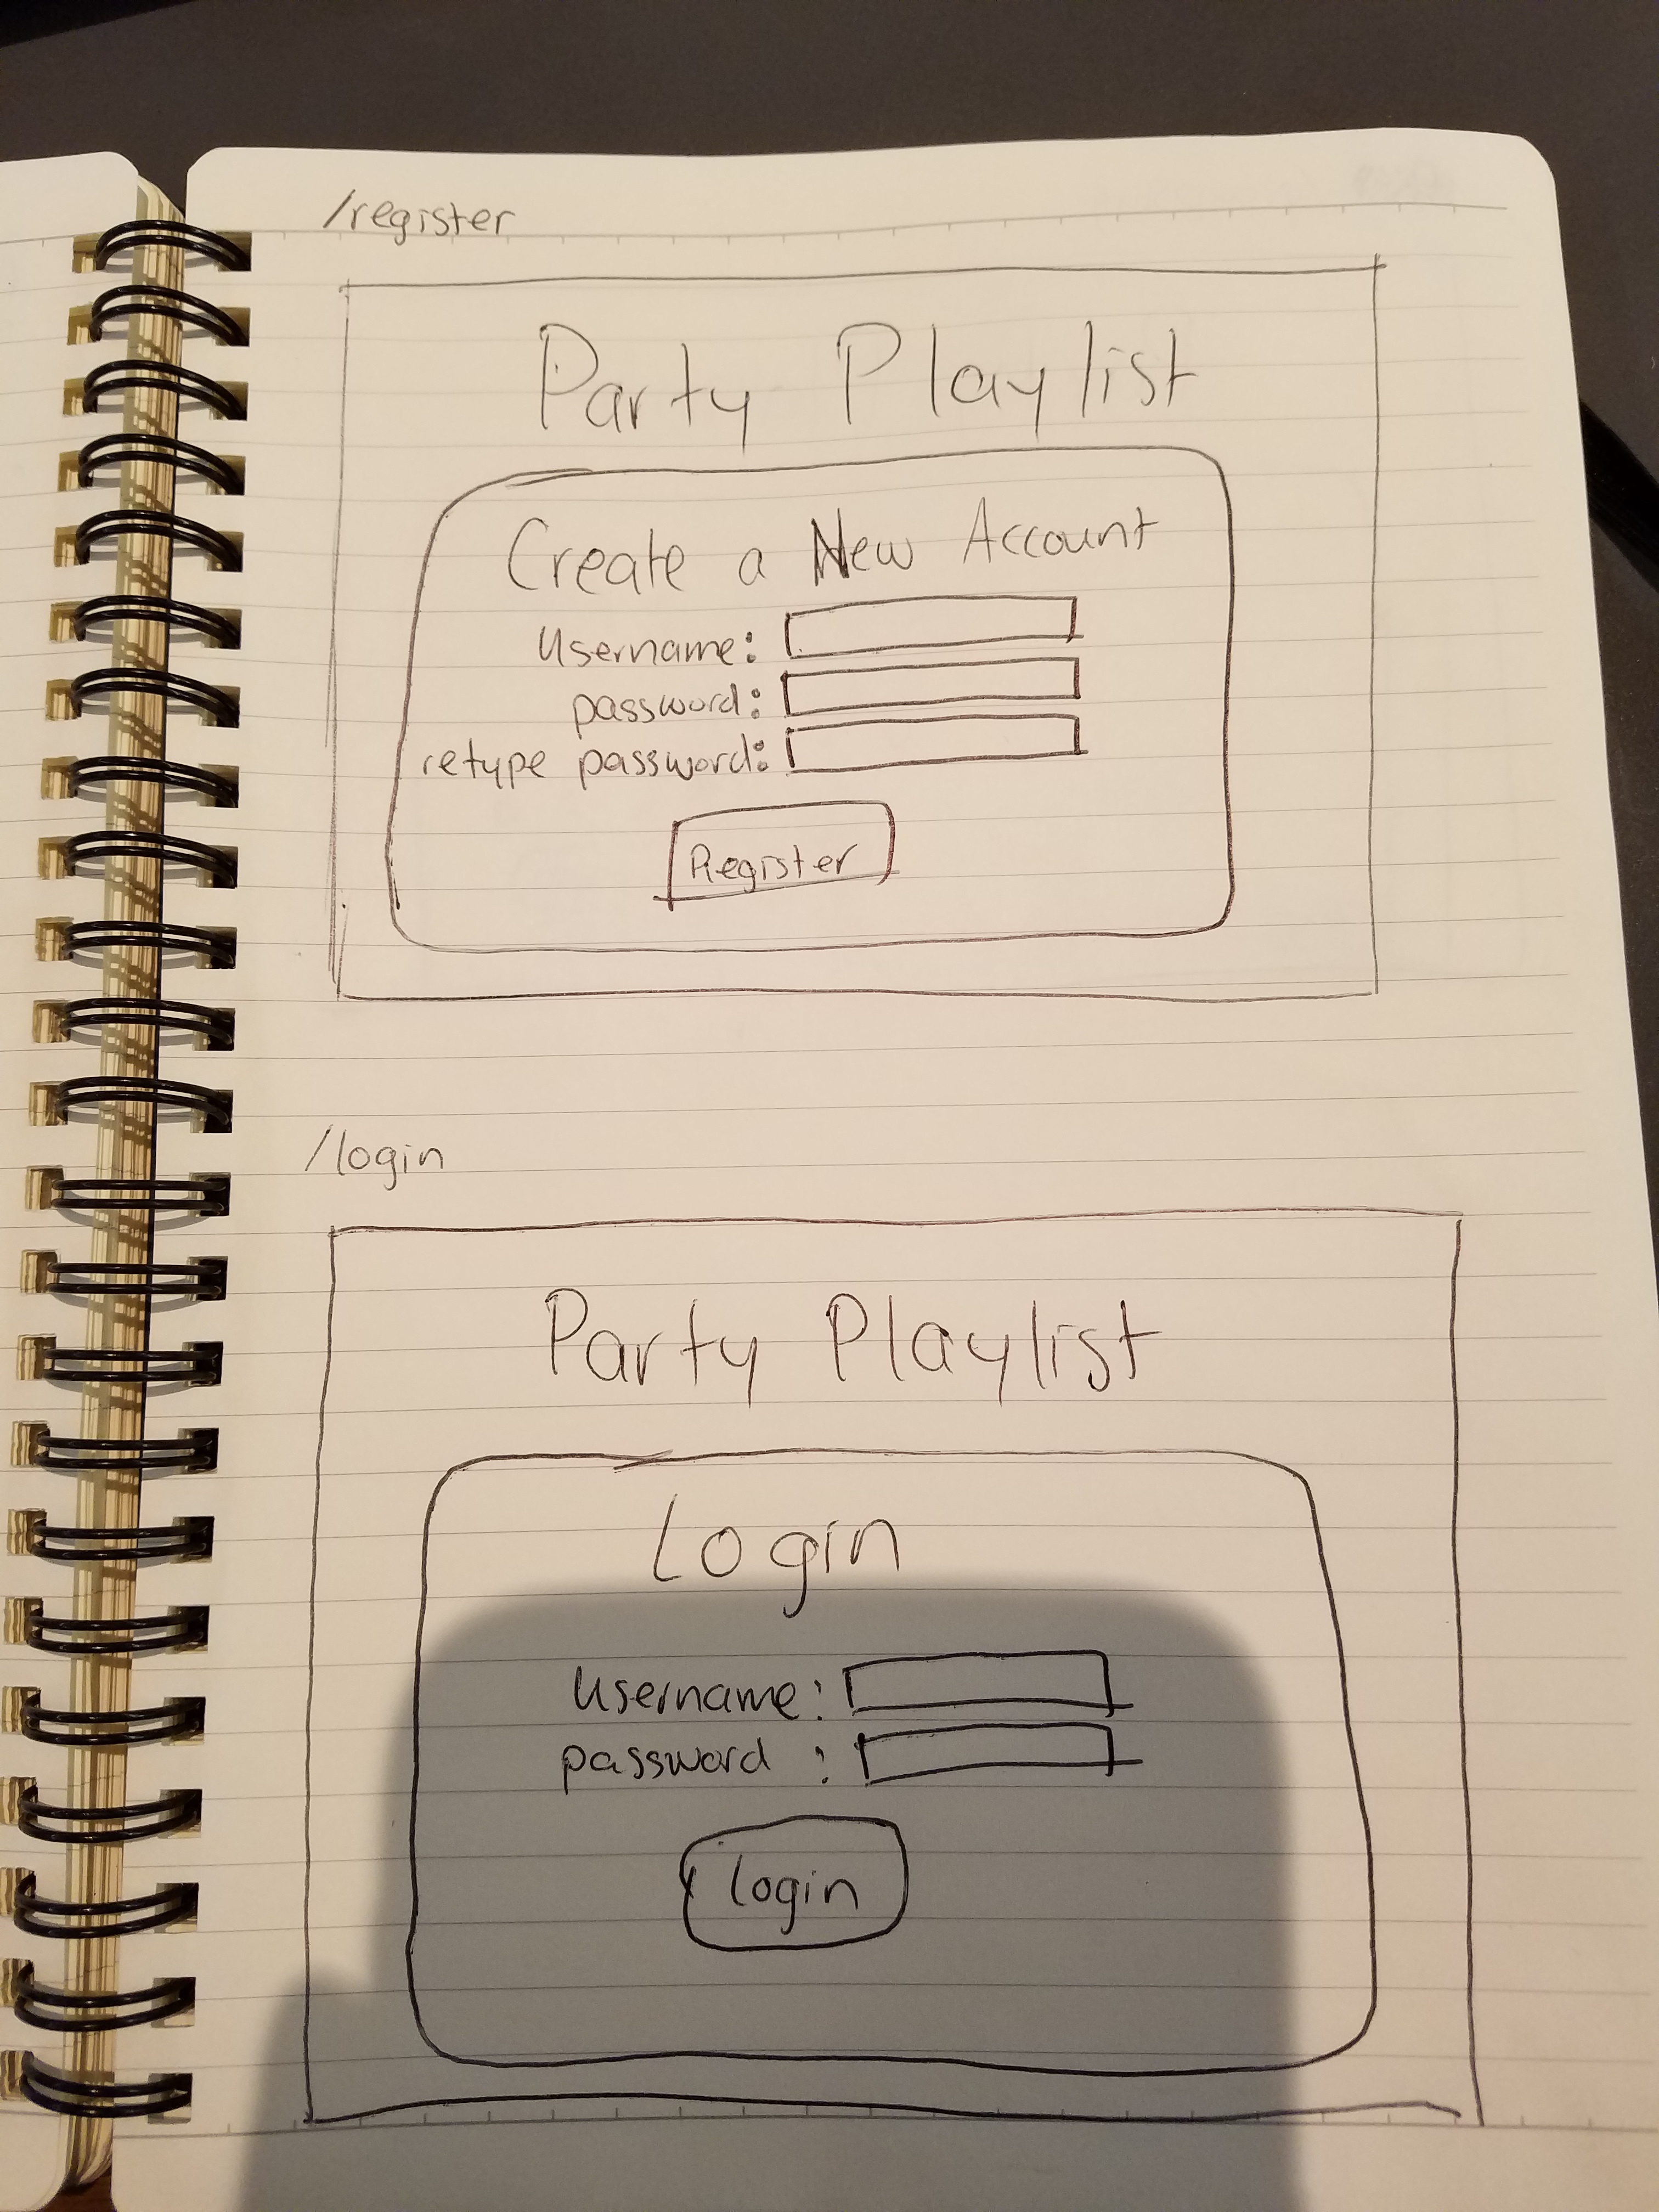 /register
Party Playlist
Create a New Account
username:
password:
retype password:
Register
/login
Party Playlist
Login
username:
password :
login